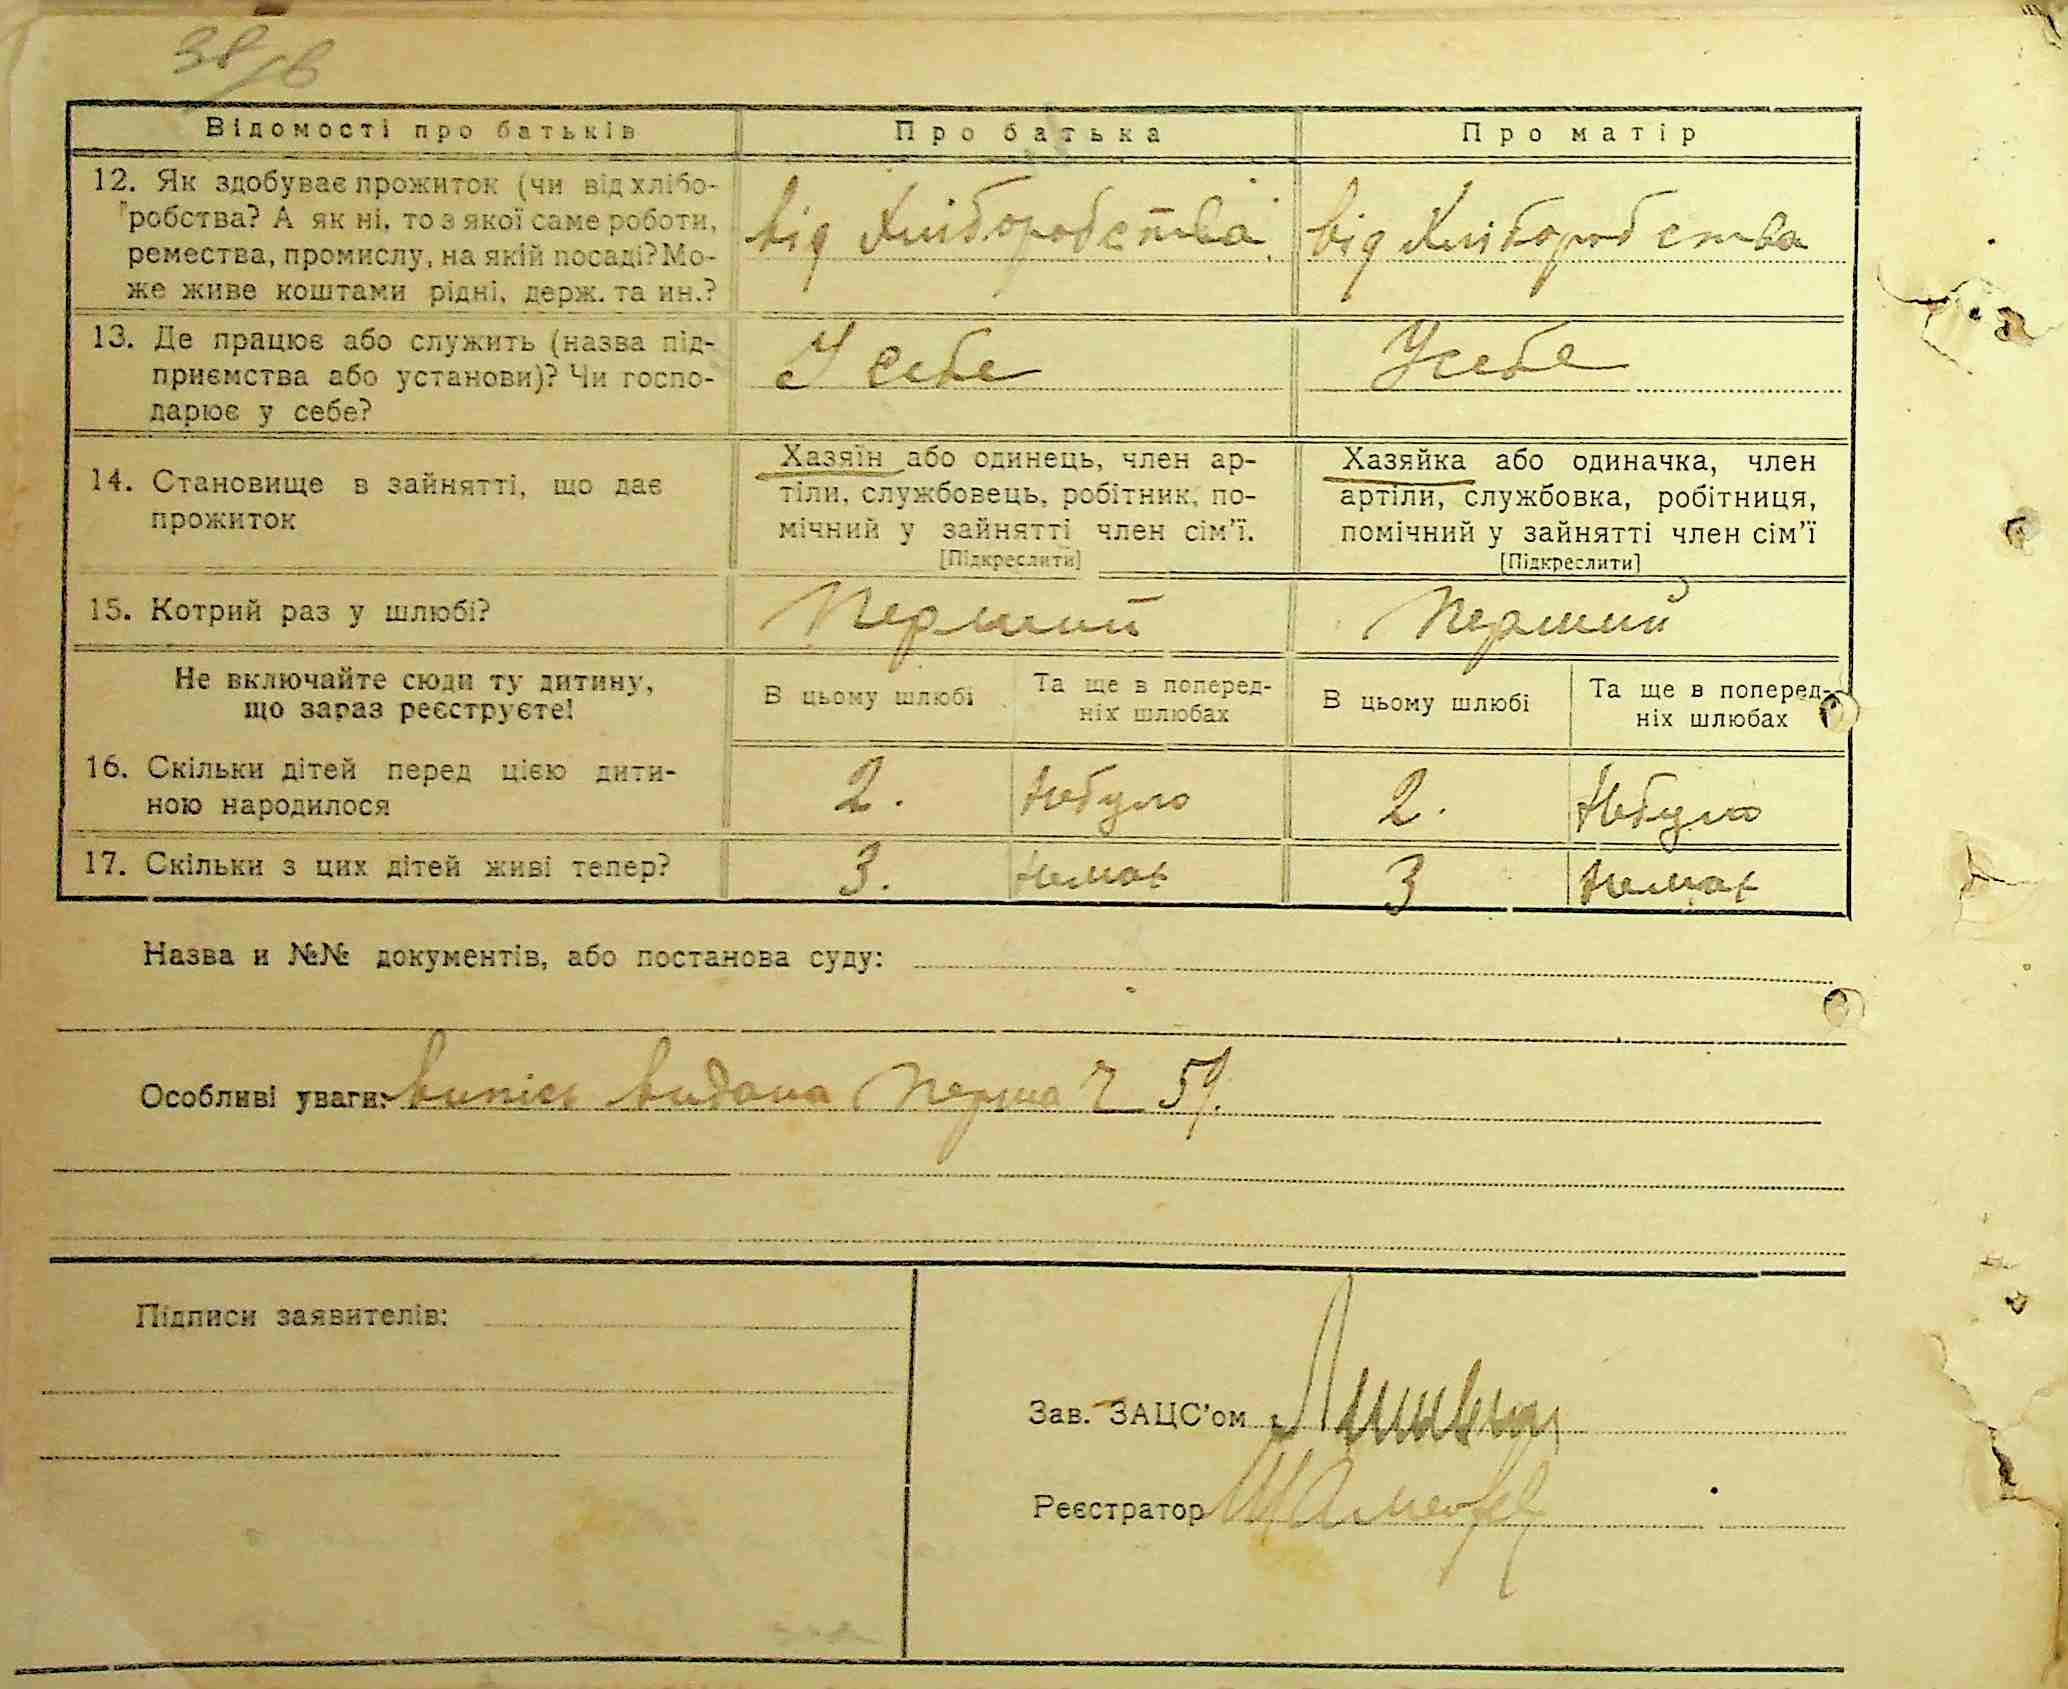 38/6
Відомості про батьків Про батька Про матір
12. Як здобуває прожиток (чи від хлібо-
робства? А як ні, то з якої саме роботи,
ремества, промислу, на якій посаді? Мо-
же живе коштами рідні, держ. та ин.?
від Хліборобства від Хліборобства
13. Де працює або служить (назва під-
приємства або установи)? Чи госпо-
дарює у себе?
У себе Усебе
14. Становище в зайнятті, що дає
прожиток
Хазяїн або одинець, член ар-
тіли, службовець, робітник, по-
мічний у зайнятті член сім'ї.
[Підкреслити]
Хазяйка або одиначка, член
артіли, службовка, робітниця,
помічний у зайнятті член сім'ї
[Підкреслити]
15. Котрий раз у шлюбі? Перший Перший
Не включайте сюди ту дитину,
що зараз реєструєте!
В цьому шлюбі
Та ще в поперед-
ніх шлюбах
В цьому шлюбі
Та ще в поперед-
ніх шлюбах
16. Скільки дітей перед цією дити-
ною народилося
2. Небуло 2. Небуло
17. Скільки з цих дітей живі тепер? 3. Немає 3 Немає
Назва и №№ документів, або постанова суду:
Особливі уваги: випись видана перша Ч 59.
Підписи заявителів:
Зав. ЗАЦС'ом
Реєстратор